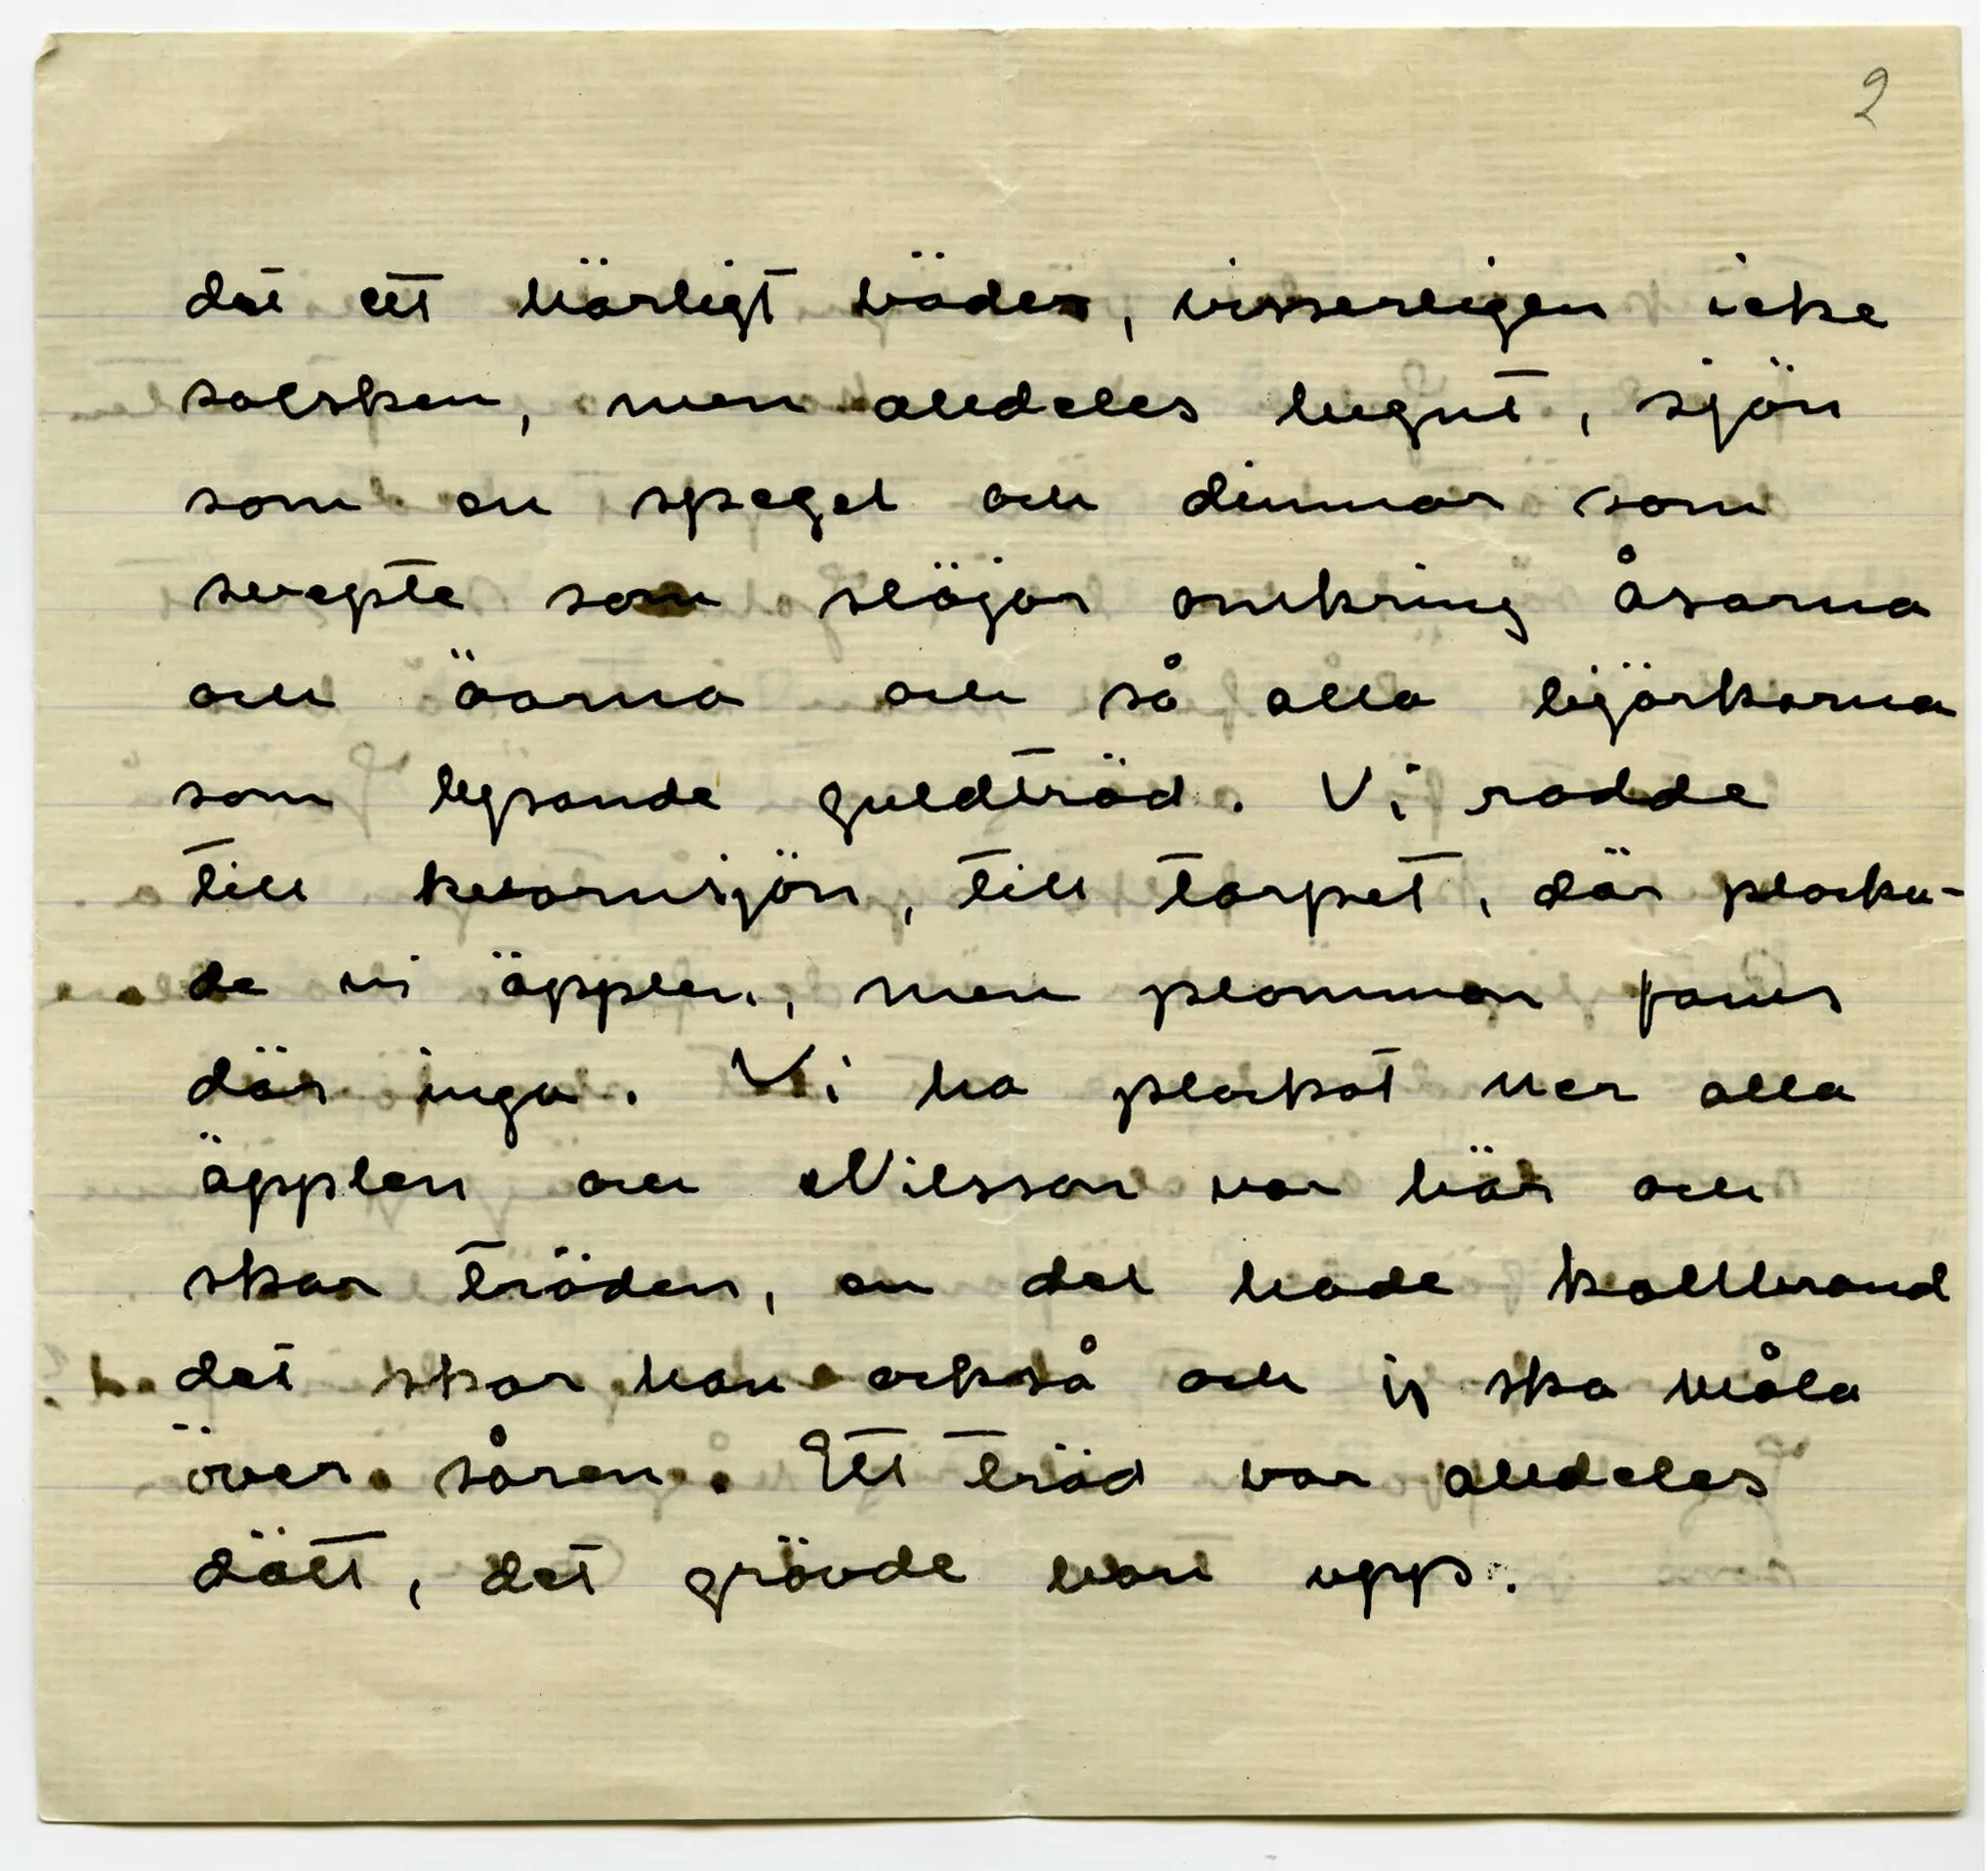 2
det ett härligt väder, visserligen icke
solsken, men alldeles lugnt, sjön
som en spegel och dimmor som
svepte som slöjor omkring åsarna
och öarna och så alla björkarna
som lysande guldträd. Vi rodde
till kvarnsjön, till torpet, där plocka-
de vi äpplen, men plommon fanns
där inga. Vi ha plockat ner alla
äpplen och Nilsson var här och
skar träden, en del hade kallbrand
det skar han också och ska måla
över såren. Ett träd var alldeles
dött, det grävde upp.